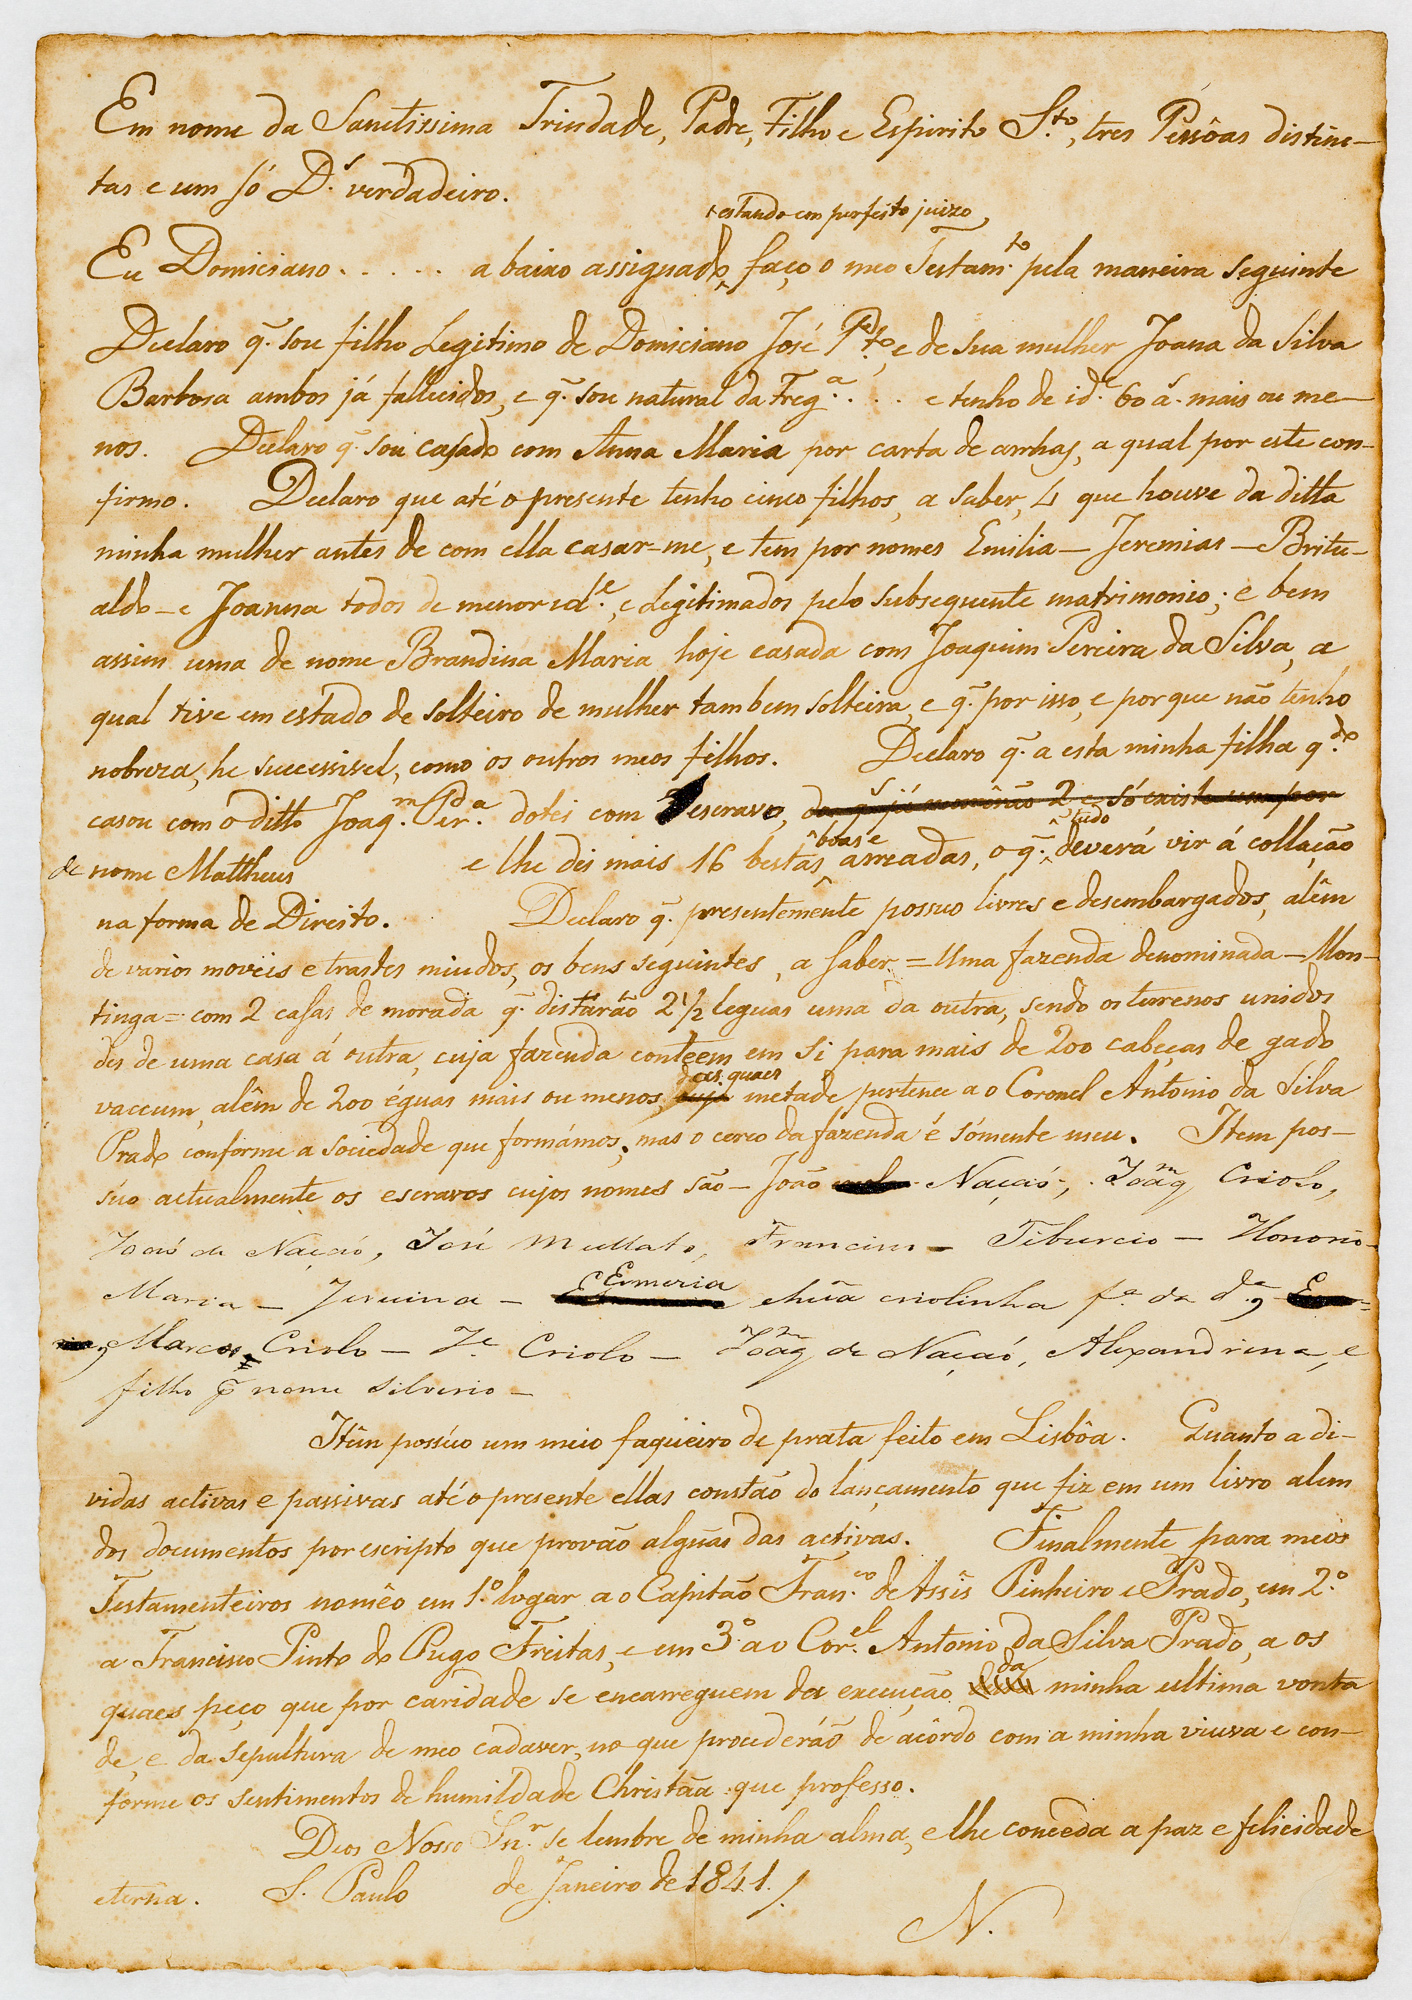 Em nome da Sanctissima Trindade, Padre, Filho e Espirito S.to, tres Pessôas distinc-
tas e um só D.s verdadeiro.
estando com perfeito juizo,
Eu Domiciano . . . . . abaixo assignado, faço o meo Testam.to pela maneira seguinte
Declaro q̃. sou filho Legitimo de Domiciano José P.to, e de sua mulher Joana da Silva
Barbosa ambos já fallecidos, e q̃. sou natural da Freg.a . . . e tenho de id.e 60 a.s mais ou me-
nos. Declaro q̃. sou casado com Anna Maria por carta de arrhas, a qual por este con-
firmo. Declaro que até o presente tenho cinco filhos, a saber, 4 que houve da ditta
minha mulher antes de com ella casar-me, e tem por nomes Emilia — Jeremias — Britu-
aldo — e Joanna todos de menor id.e, e Legitimados pelo subsequente matrimonio; e bem
assim uma de nome Brandina Maria hoje casada com Joaquim Pereira da Silva, a
qual tive em estado de solteiro de mulher tambem solteira, e q̃. por isso, e porque não tenho
nobreza, he successivel, como os outros meos filhos. Declaro q̃. a esta minha filha q.do
casou com o ditto Joaq.m Per.a dotei com escravo, do q̃ já morrêrão 2, e só existe um por
de nome Mattheus e lhe dei mais 16 bestas boas e arreadas, o q̃. tudo deverá vir á collação
na forma de Direito. Declaro q̃. presentemente possuo livres e desembargados, alêm
de varios moveis e trastes miudos, os bens seguintes, a saber = Uma fazenda denominada — Mon-
tinga = com 2 casas de morada q̃. distarão 2 1/2 leguas uma da outra, sendo os terrenos unidos
des de uma casa á outra, cuja fazenda conteem em si para mais de 200 cabeças de gado
das quaes
vaccum, alêm de 200 éguas mais ou menos, cuja metade pertence ao Coronel Antonio da Silva
Prado conforme a sociedade que formámos, mas o cerco da fazenda é sómente meu. Item pos-
súo actualmente os escravos cujos nomes são — João Nação, Joaq.m Criolo,
João de Nação, José Mullato, Francisco — Tiburcio — Honorio —
Maria — Jesuina — Esmeria e huã criolinha f.a da d.a
Marcos Criolo — J.e Criolo — Joaq.m de Nação, Alexandrina, e
filho p̃ nome Silverio —
Itêm possúo um meio faqueiro de prata feito em Lisbôa. Quanto a di-
vidas activas e passivas até o presente ellas constão do lançamento que fiz em um livro alem
dos documentos por escripto que provão algũas das activas. Finalmente para meos
Testamenteiros nomêo em 1.º lugar ao Capitão Fran.co de Assis Pinheiro e Prado, em 2.º
a Francisco Pinto do Rego Freitas, e em 3.º ao Cor.el Antonio da Silva Prado, a os
quaes peço que por caridade se encarreguem da execução da minha ultima vonta
de, e da sepultura de meo cadaver, no que procederáõ de acôrdo com a minha viuva e con-
forme os sentimentos de humildade Christãa que professo.
Deos Nosso Sn.r se lembre de minha alma, e lhe conceda a paz e felicidade
eterna. S. Paulo de Janeiro de 1841./
N.